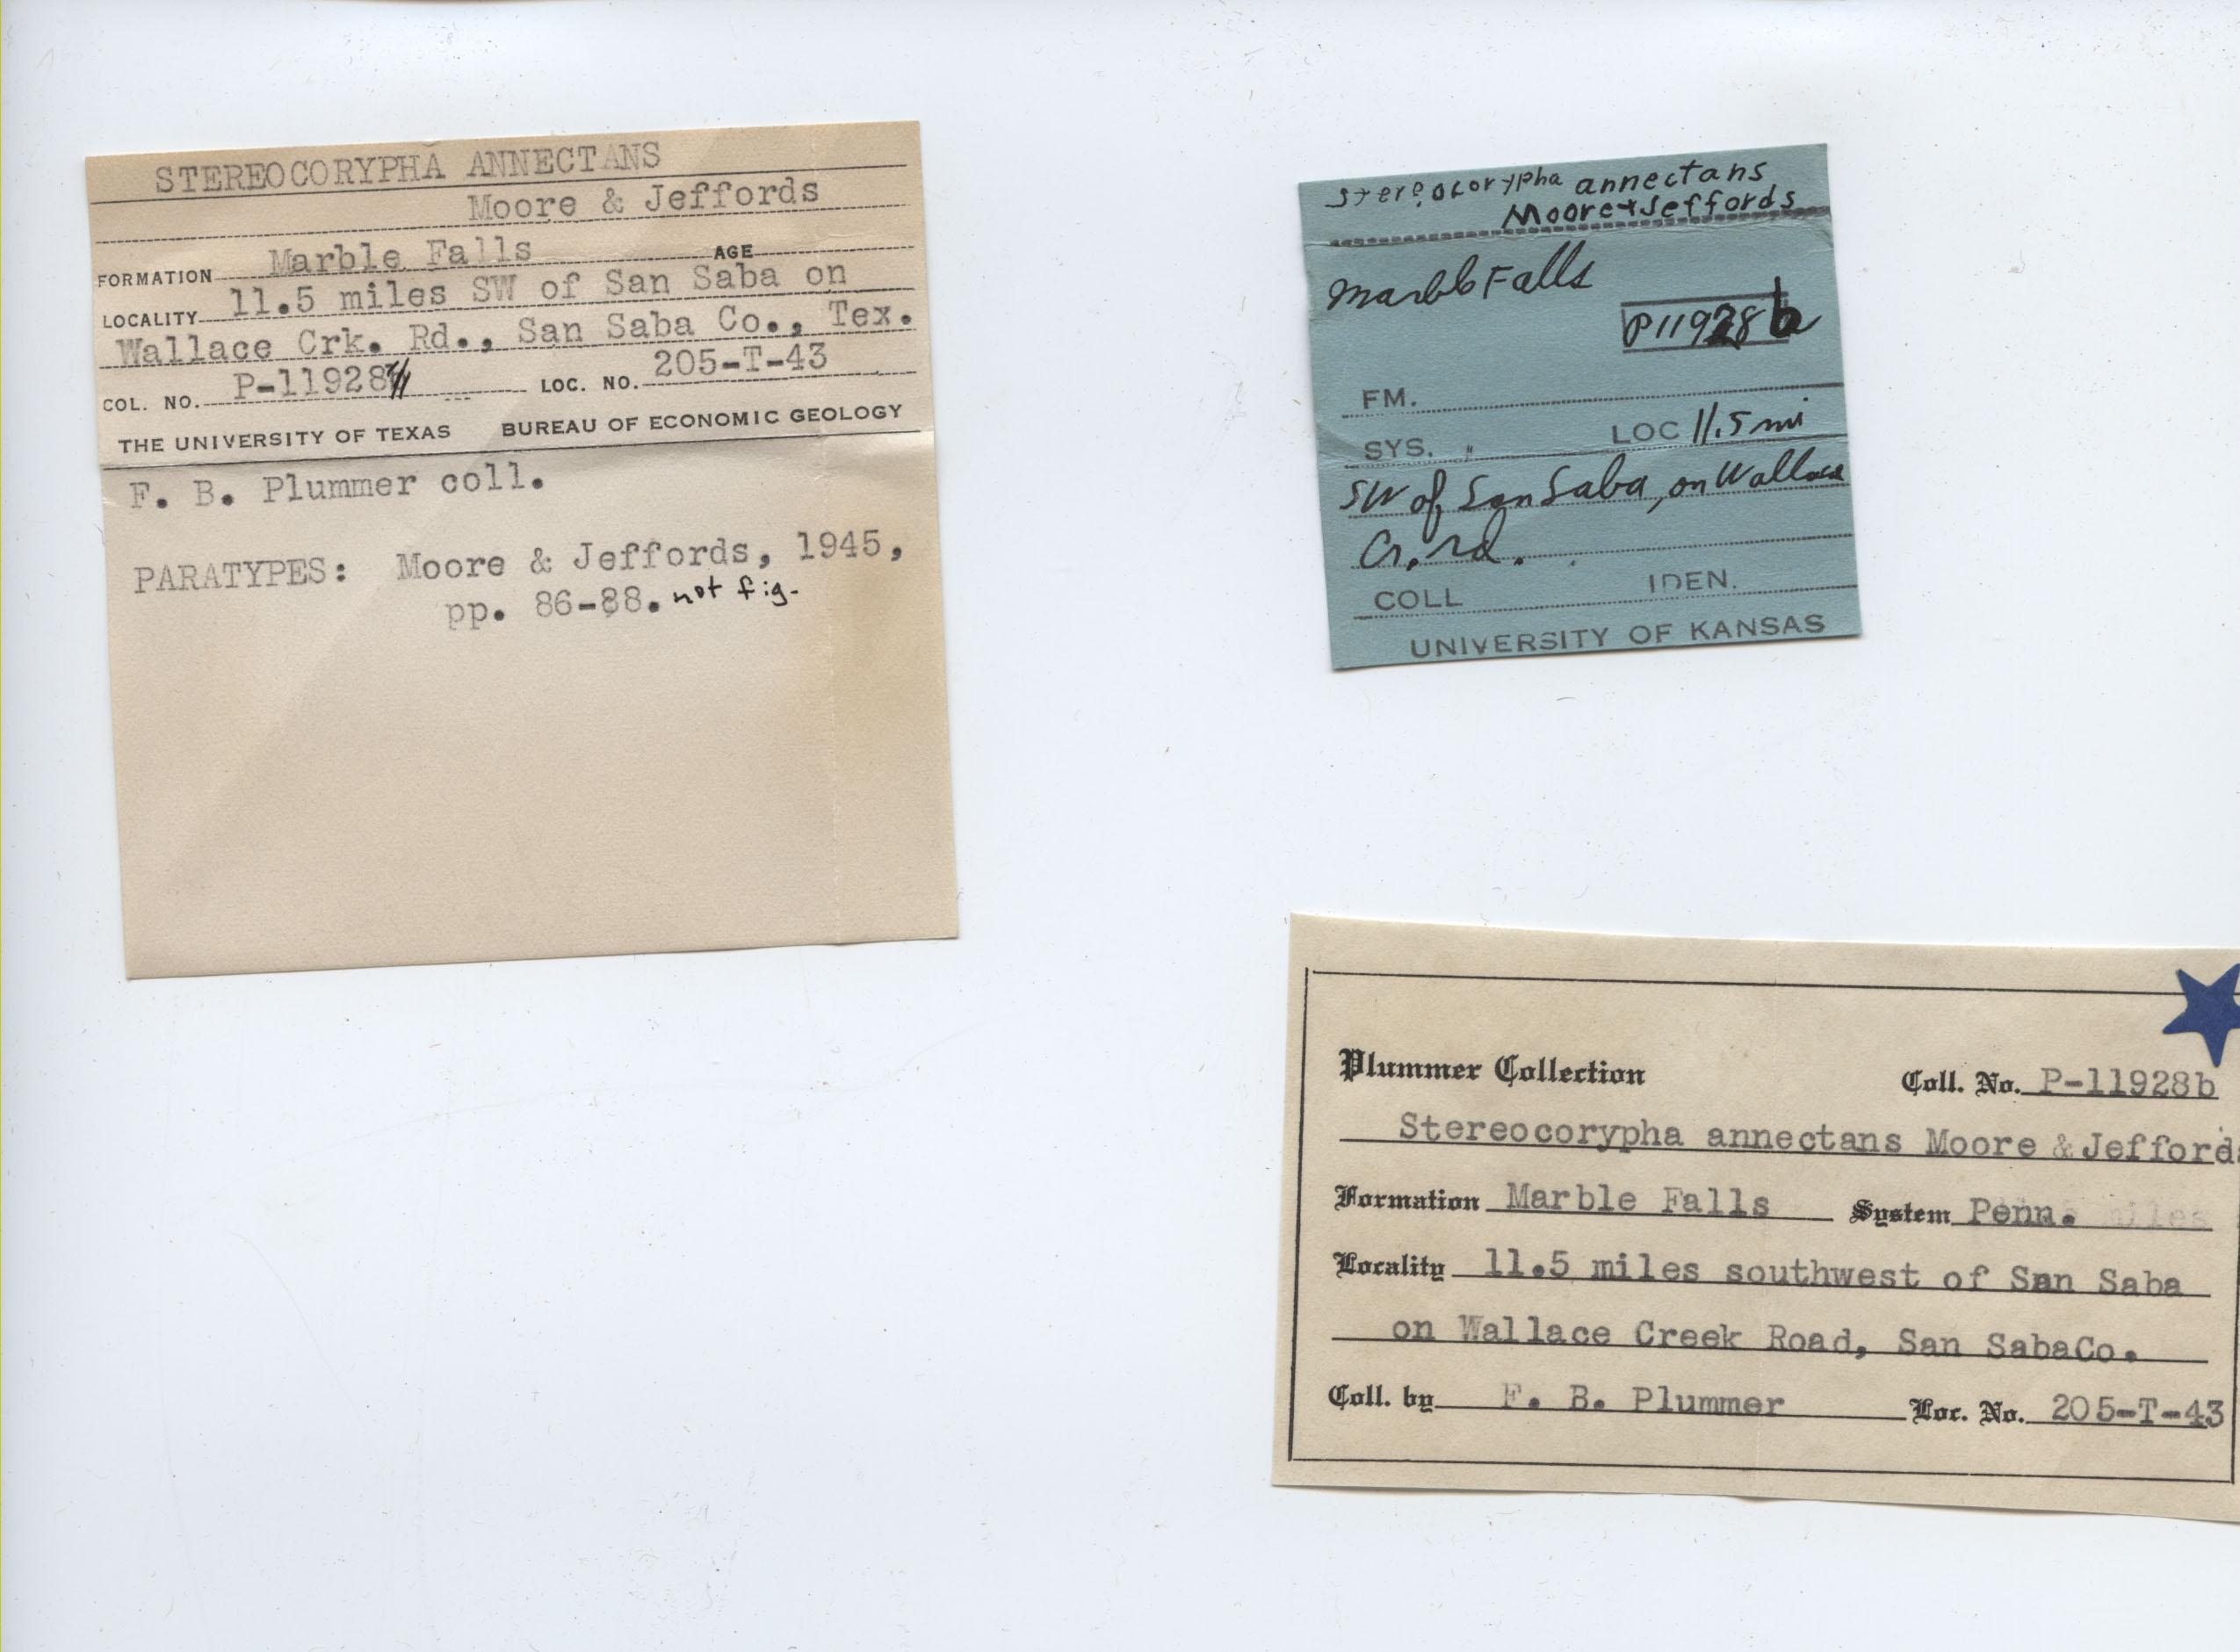 STEREOCORYPHA ANNECTANS
Moore & Jeffords
FORMATION Marble Falls AGE
LOCALITY 11.5 miles SW of San Saba on
Wallace Crk. Rd., San Saba Co., Tex.
COL. NO. P-11928 LOC. NO. 205-T-43
THE UNIVERSITY OF TEXAS BUREAU OF ECONOMIC GEOLOGY
F. B. Plummer coll.
PARATYPES: Moore & Jeffords, 1945,
pp. 86-88. not fig.
Stereocorypha annectans
Moore & Jeffords
Marble Falls
P11928b
FM.
SYS. " LOC 11.5 mi
SW of San Saba, on Wallace
Cr. rd.
COLL IDEN.
UNIVERSITY OF KANSAS
Plummer Collection Coll. No. P-11928b
Stereocorypha annectans Moore & Jeffords
Formation Marble Falls System Penn. miles
Locality 11.5 miles southwest of San Saba
on Wallace Creek Road, San SabaCo.
Coll. by F. B. Plummer Loc. No. 205-T-43